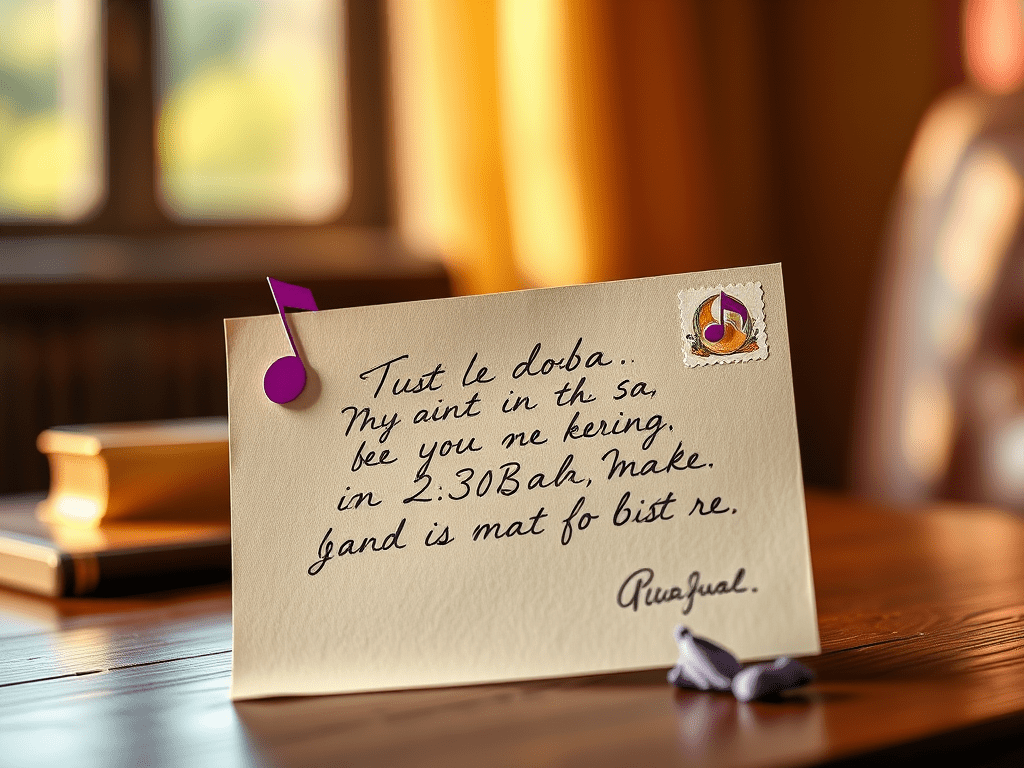 Tust le doba..
My aint in th sa,
bee you ne kering.
in 2:30Bak, Make.
gand is mat fo bist re.